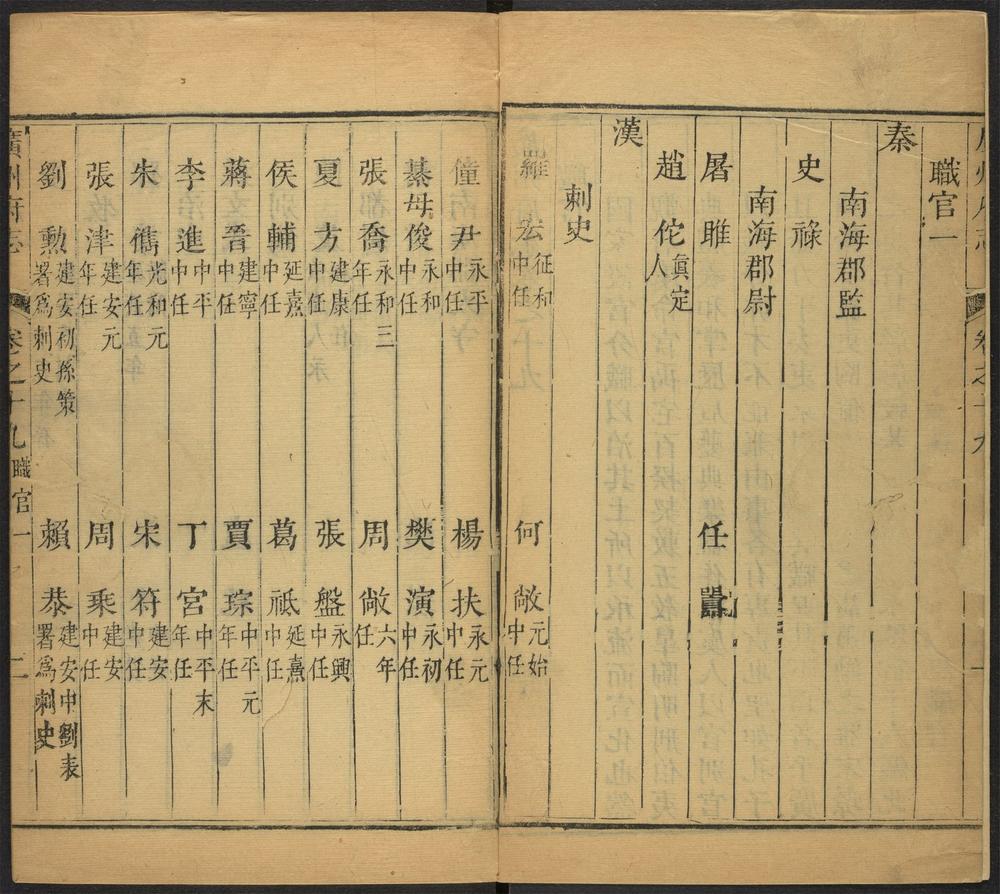 職官一
秦
南海郡監
史祿
南海郡尉
屠睢 任囂
趙佗 真定人
漢
刺史
羅宏 征和中任 何敞 元始中任
僮尹 永平中任 楊扶 永元中任
綦母俊 永和中任 樊演 永初中任
張喬 永和三年任 周敞 六年任
夏方 建康中任 張盤 永興中任
侯輔 延熹中任 葛祗 延熹中任
蔣晉 建寧中任 賈琮 中平元年任
李進 中平中任 丁宮 中平末年任
朱儁 光和元年任 宋符 建安中任
張津 建安元年任 周乘 建安中任
劉勲 建安初孫策署爲刺史 賴恭 建安中劉表署爲刺史
廣州府志 卷之十九 職官一 二